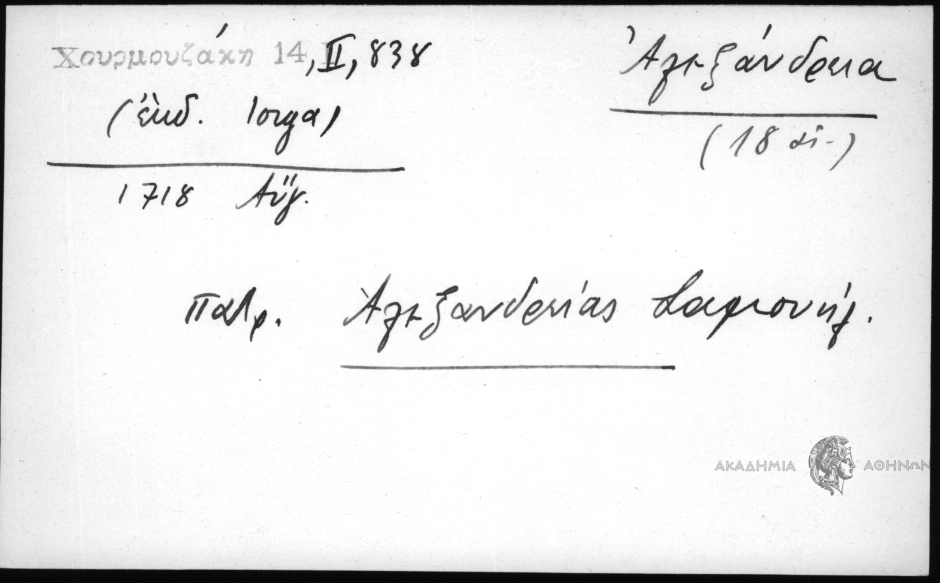 Χουρμουζάκη 14, II, 838
(ἐκδ. Ιorga)
1718 Αὔγ.
Ἀλεξάνδρεια
(18 αἰ.)
πατρ. Ἀλεξανδρείας Σαμουήλ.
ΑΚΑΔΗΜΙΑ ΑΘΗΝΩΝ